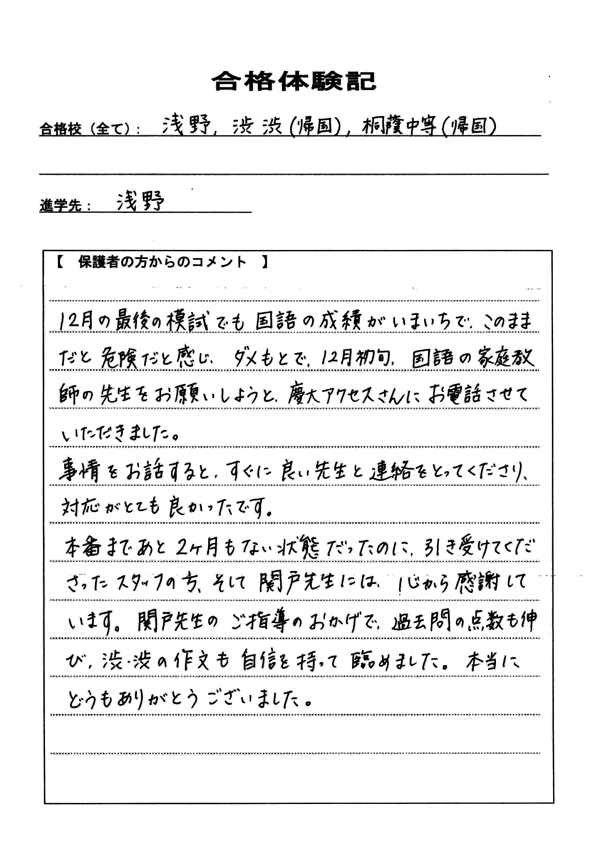 合格体験記
合格校（全て）： 浅野, 渋渋(帰国), 桐蔭中等(帰国)
進学先： 浅野
【 保護者の方からのコメント 】
12月の最後の模試でも国語の成績がいまいちで、このまま
だと危険だと感じ、ダメもとで、12月初旬、国語の家庭教
師の先生をお願いしようと、慶大アクセスさんにお電話させて
いただきました。
事情をお話すると、すぐに良い先生と連絡をとってくださり、
対応がとても良かったです。
本番まであと2ヶ月もない状態だったのに、引き受けてくだ
さったスタッフの方、そして関戸先生には、心から感謝して
います。関戸先生のご指導のおかげで、過去問の点数も伸
び、渋・渋の作文も自信を持って臨めました。本当に
どうもありがとうございました。